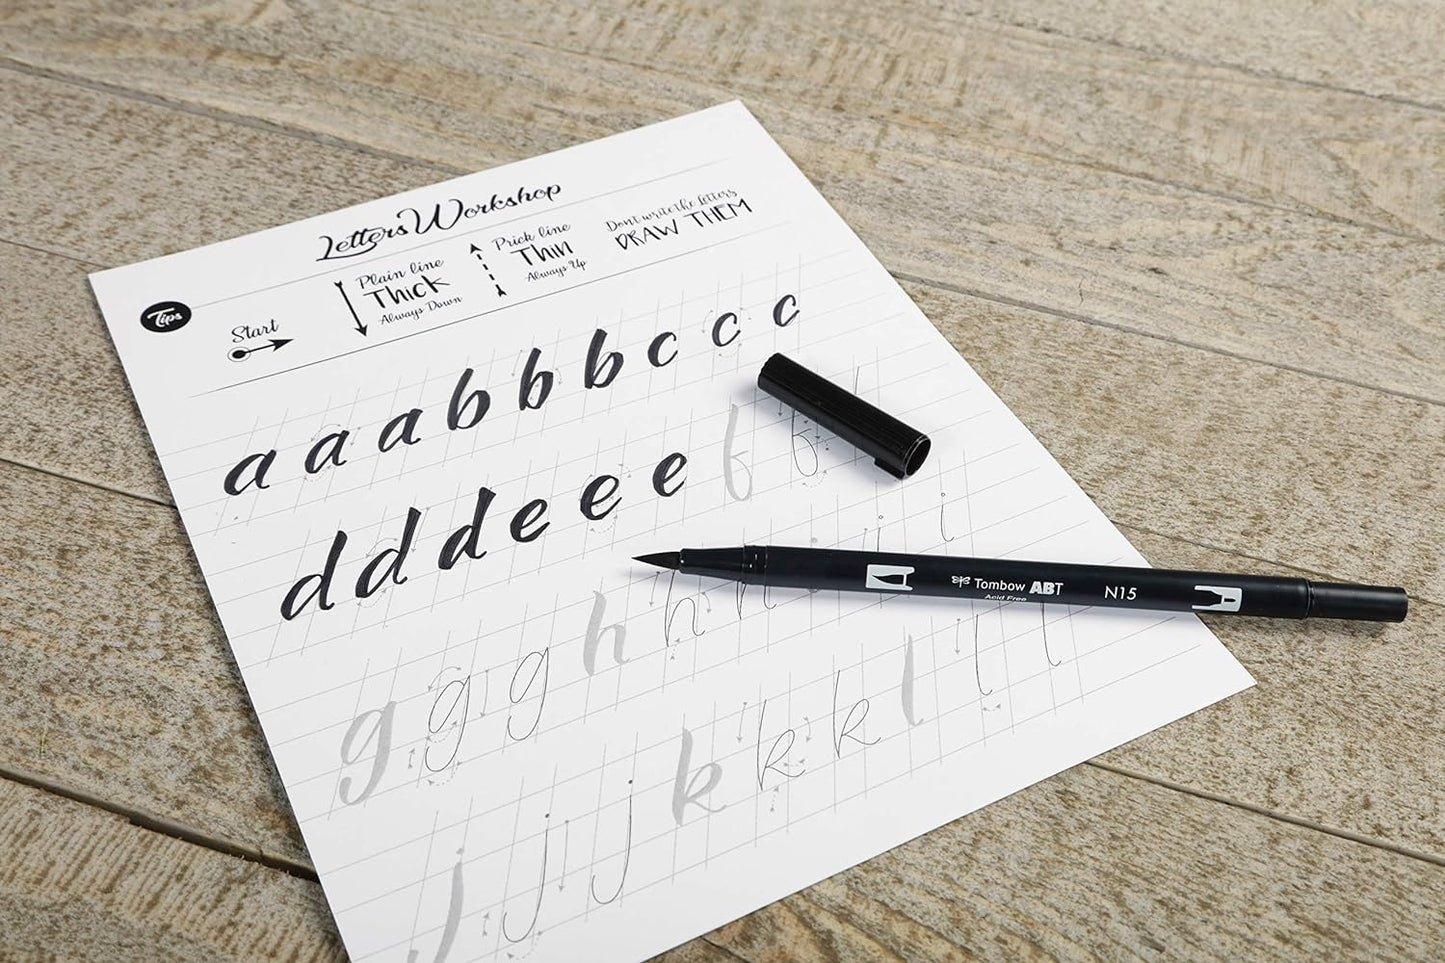 Letters Workshop
Tips
Start
Plain line
Thick
Always Down
Prick line
Thin
Always Up
Dont write the letters
DRAW THEM
a a a b b b c c c
d d d e e e f f
i i
g g g h h h
l l l
j j j k k k
Tombow ABT
Acid Free
N15